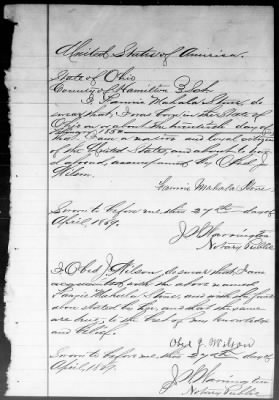 United States of America.
State of Ohio
County of Hamilton
I, Fannie Mahala Stone, do
swear that I was born in the State of
Ohio on or about the day of
that I am a native and loyal citizen
of the United States, and about to travel
abroad, accompanied by Obed J.
Wilson.
Fannie Mahala Stone
Sworn to before me this 27th day of
April, 1867.
Notary Public
I Obed J. Wilson do swear that I am
acquainted with the above named
Fannie Mahala Stone, and with the facts
above stated by her, and that the same
are true, to the best of my knowledge
and belief.
Obed J. Wilson
Sworn to before me this 27th day of
April, 1867.
Notary Public